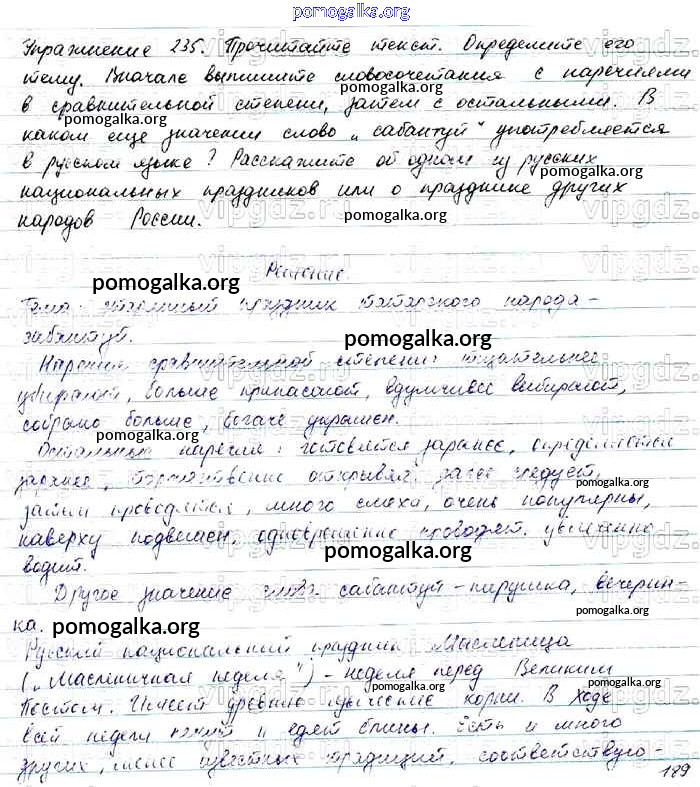 pomogalka.org
Упражнение 235. Прочитайте текст. Определите его
тему. Вначале выпишите словосочетания с наречиями
в сравнительной степени, затем с остальными. В
каком еще значении слово „сабантуй“ употребляется
в русском языке? Расскажите об одном из русских
национальных праздников или о празднике других
народов России.
Решение.
Тема: старинный праздник татарского народа -
сабантуй.
Наречия сравнительной степени: тщательнее
убирают, больше припасают, вдумчивее выбирают,
собрано больше, богаче украшен.
Остальные наречия: готовятся заранее, определяется
заранее, торжественно открывал, далее следует,
затем проводятся, много смеха, очень популярны,
наверху подвешен, одновременно проводят,
водит.
Другое значение сабантуй - пирушка, вечерин-
ка.
Русский национальный праздник Масленица
(„Масленичная неделя“) - неделя перед Великим
Постом. Имеет древние языческие корни. В ходе
всей недели и едят блины. Есть и много
других, менее известных традиций, соответствую-
189
pomogalka.org
pomogalka.org
pomogalka.org
pomogalka.org
pomogalka.org
pomogalka.org
pomogalka.org
pomogalka.org
pomogalka.org
pomogalka.org
pomogalka.org
pomogalka.org
pomogalka.org